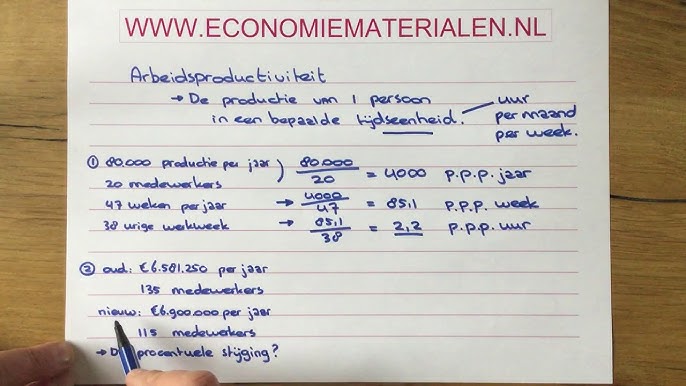 WWW.ECONOMIEMATERIALEN.NL
Arbeidsproductiviteit
→ De productie van 1 persoon
in een bepaalde tijdseenheid.
uur
per maand
per week.
① 80.000 productie per jaar ) 80.000/20 = 4000 p.p.p. jaar
20 medewerkers
47 weken per jaar → 4000/47 = 85,1 p.p.p. week
38 urige werkweek → 85,1/38 = 2,2 p.p.p. uur
② oud: €6.581.250 per jaar
135 medewerkers
nieuw: €6.900.000 per jaar
115 medewerkers
→ procentuele stijging?